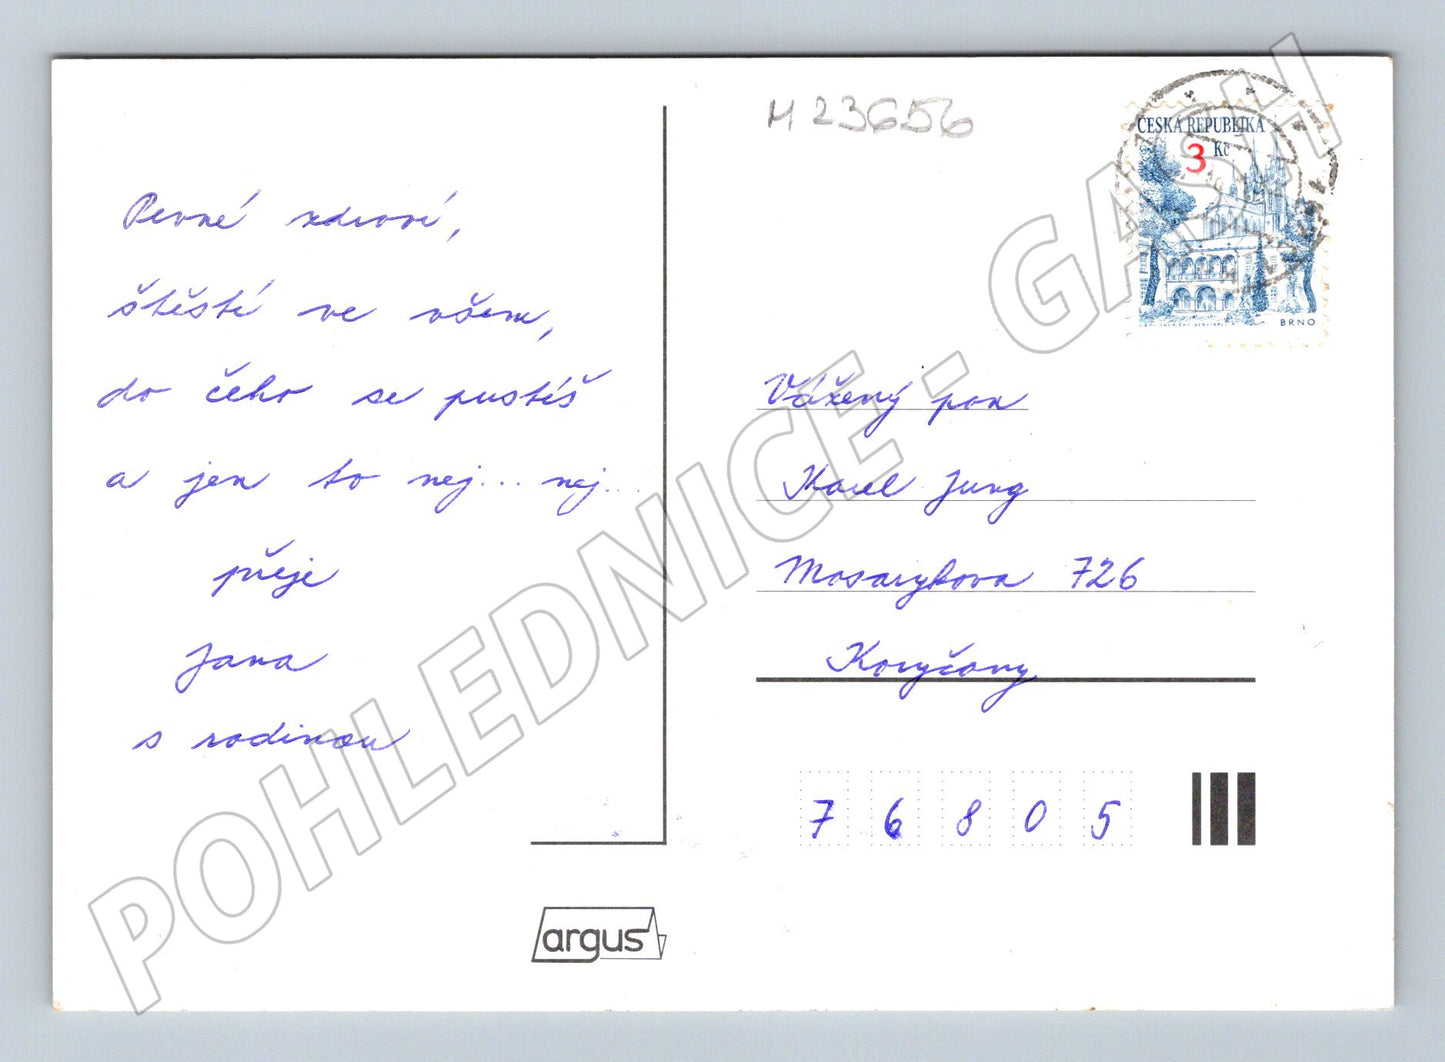 M 23656
ČESKA REPUBLIKA
3 Kč
BRNO
Pevné zdraví,
štěstí ve všem,
do čeho se pustíš
a jen to nej... nej...
přeje
Jana
s rodinou
Vážený pan
Karel Jung
Masarykova 726
Koryčany
7 6 8 0 5
argus
POHLEDNICE - GASH